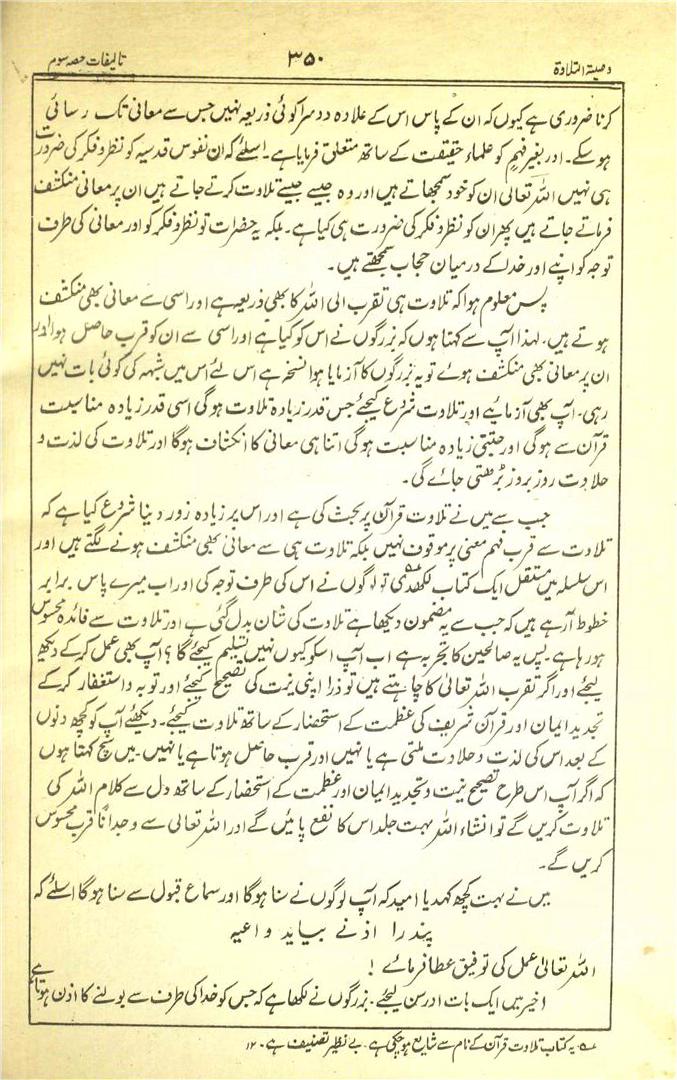 وصیۃ التلاوۃ
۳۵۰
تالیفات حصہ سوم
کرنا ضروری ہے کیوں کہ ان کے پاس اس کے علادہ ددسرا کوئی ذریعہ نہیں جس سے معانی تک رسائی
ہوسکے۔ اور بغیر فہم کو علماء حقیقت کے ساتھ متعلق فرمایا ہے۔ اسلئے کہ ان نفوس قدسیہ کو نظر و فکر کی ضرورت
ہی نہیں اللہ تعالیٰ ان کو خود سمجھاتے ہیں اور وہ جیسے جیسے تلاوت کرتے جاتے ہیں ان پر معانی منکشف
فرماتے جاتے ہیں پھر ان کو نظر و فکر کی ضرورت ہی کیا ہے۔ بلکہ یہ حضرات تو نظر و فکر کو اور معانی کی طرف
توجہ کو اپنے اور خدا کے درمیان حجاب سمجھتے ہیں۔
پس معلوم ہوا کہ تلاوت ہی تقرب الی اللہ کا بھی ذریعہ ہے اور اسی سے معانی بھی منکشف
ہوتے ہیں۔ لہذا آپ سے کہتا ہوں کہ بزرگوں نے اس کو کیا ہے اور اسی سے ان کو قرب حاصل ہوا اور
ان پر معانی بھی منکشف ہوئے تو یہ بزرگوں کا آزمایا ہوا نسخہ ہے اس لئے اس میں شبہ کی کوئی بات نہیں
رہی۔ آپ بھی آزمائیے اور تلاوت شروع کیجئے جس قدر زیادہ تلاوت ہوگی اسی قدر زیادہ مناسبت
قرآن سے ہوگی اور جتنی زیادہ مناسبت ہوگی اتنا ہی معانی کا انکشاف ہوگا اور تلاوت کی لذت و
حلادت روز بروز بڑھتی جائے گی۔
جب سے میں نے تلاوت قرآن پر بحث کی ہے اور اس پر زیادہ زور دینا شروع کیا ہے کہ
تلاوت سے قرب فہم معنی پر موقوف نہیں بلکہ تلاوت ہی سے معانی بھی منکشف ہونے لگتے ہیں اور
اس سلسلہ میں مستقل ایک کتاب لکھدی ؎ تو لوگوں نے اس کی طرف توجہ کی اور اب میرے پاس برابر
خطوط آرہے ہیں کہ جب سے یہ مضمون دیکھا ہے تلادت کی شان بدل گئی ہے اور تلاوت سے فائدہ محسوس
ہو رہا ہے۔ پس یہ صالحین کا تجربہ ہے اب آپ اسکو کیوں نہیں تسلیم کیجئے گا؟ آپ بھی عمل کرکے دیکھ
لیجئے اور اگر تقرب اللہ تعالیٰ کا چاہتے ہیں تو ذرا اپنی نیت کی تصحیح کیجئے اور توبہ و استغفار کرکے
تجدید ایمان اور قرآن شریف کی عظمت کے استحضار کے ساتھ تلاوت کیجئے۔ دیکھئے آپ کو کچھ دنوں
کے بعد اس کی لذت و حلادت ملتی ہے یا نہیں اور قرب حاصل ہوتا ہے یا نہیں۔ میں سچ کہتا ہوں
کہ اگر آپ اس طرح تصحیح نیت و تجدید ایمان اور عظمت کے استحضار کے ساتھ دل سے کلام اللہ کی
تلاوت کریں گے تو انشاء اللہ بہت جلد اس کا نفع پائیں گے اور اللہ تعالیٰ سے وجداناً قرب محسوس
کریں گے۔
میں نے بہت کچھ کہدیا امید کہ آپ لوگوں نے سنا ہوگا اور سماع قبول سے سنا ہوگا اسلئے کہ
پند را اذنے بباید واعیہ
اللہ تعالیٰ عمل کی توفیق عطا فرمائے!
اخیر میں ایک بات اور سن لیجئے۔ بزرگوں نے لکھا ہے کہ جس کو خدا کی طرف سے بولنے کا اذن ہوتا ہے
؎ یہ کتاب تلاوت قرآن کے نام سے شایع ہوچکی ہے۔ بے نظیر تصنیف ہے۔ ۱۲